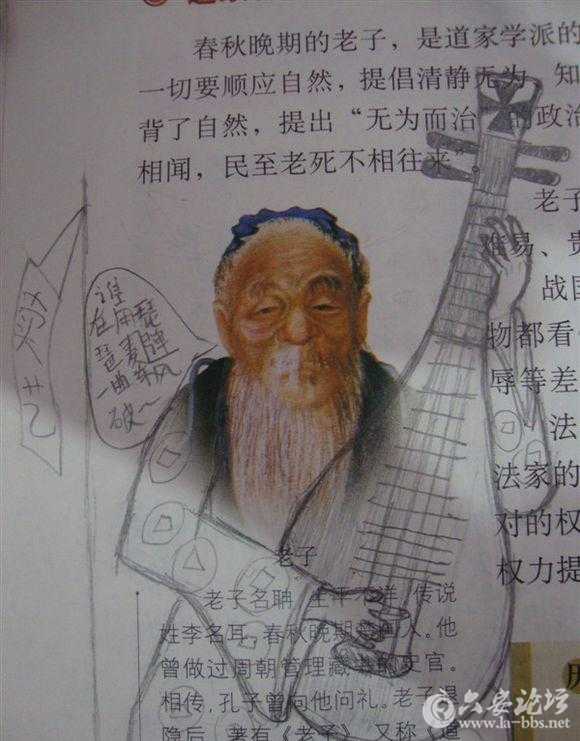 春秋晚期的老子，是道家学派的
一切要顺应自然，提倡清静无为 知
背了自然，提出“无为而治 的政治
相闻，民至老死不相往来
老子
难易、贵
战国
物都看
辱等差
法
法家的
对的权
权力提
谁
在用琵
琶
一曲东风
破~
老子
老子名聃，生平 详，传说
姓李名耳，春秋晚期 国人。他
曾做过周朝管理藏 的史官。
相传，孔子曾向他问礼。老子退
隐后，著有《老子》，又称《道
六安论坛
www.la-bbs.net